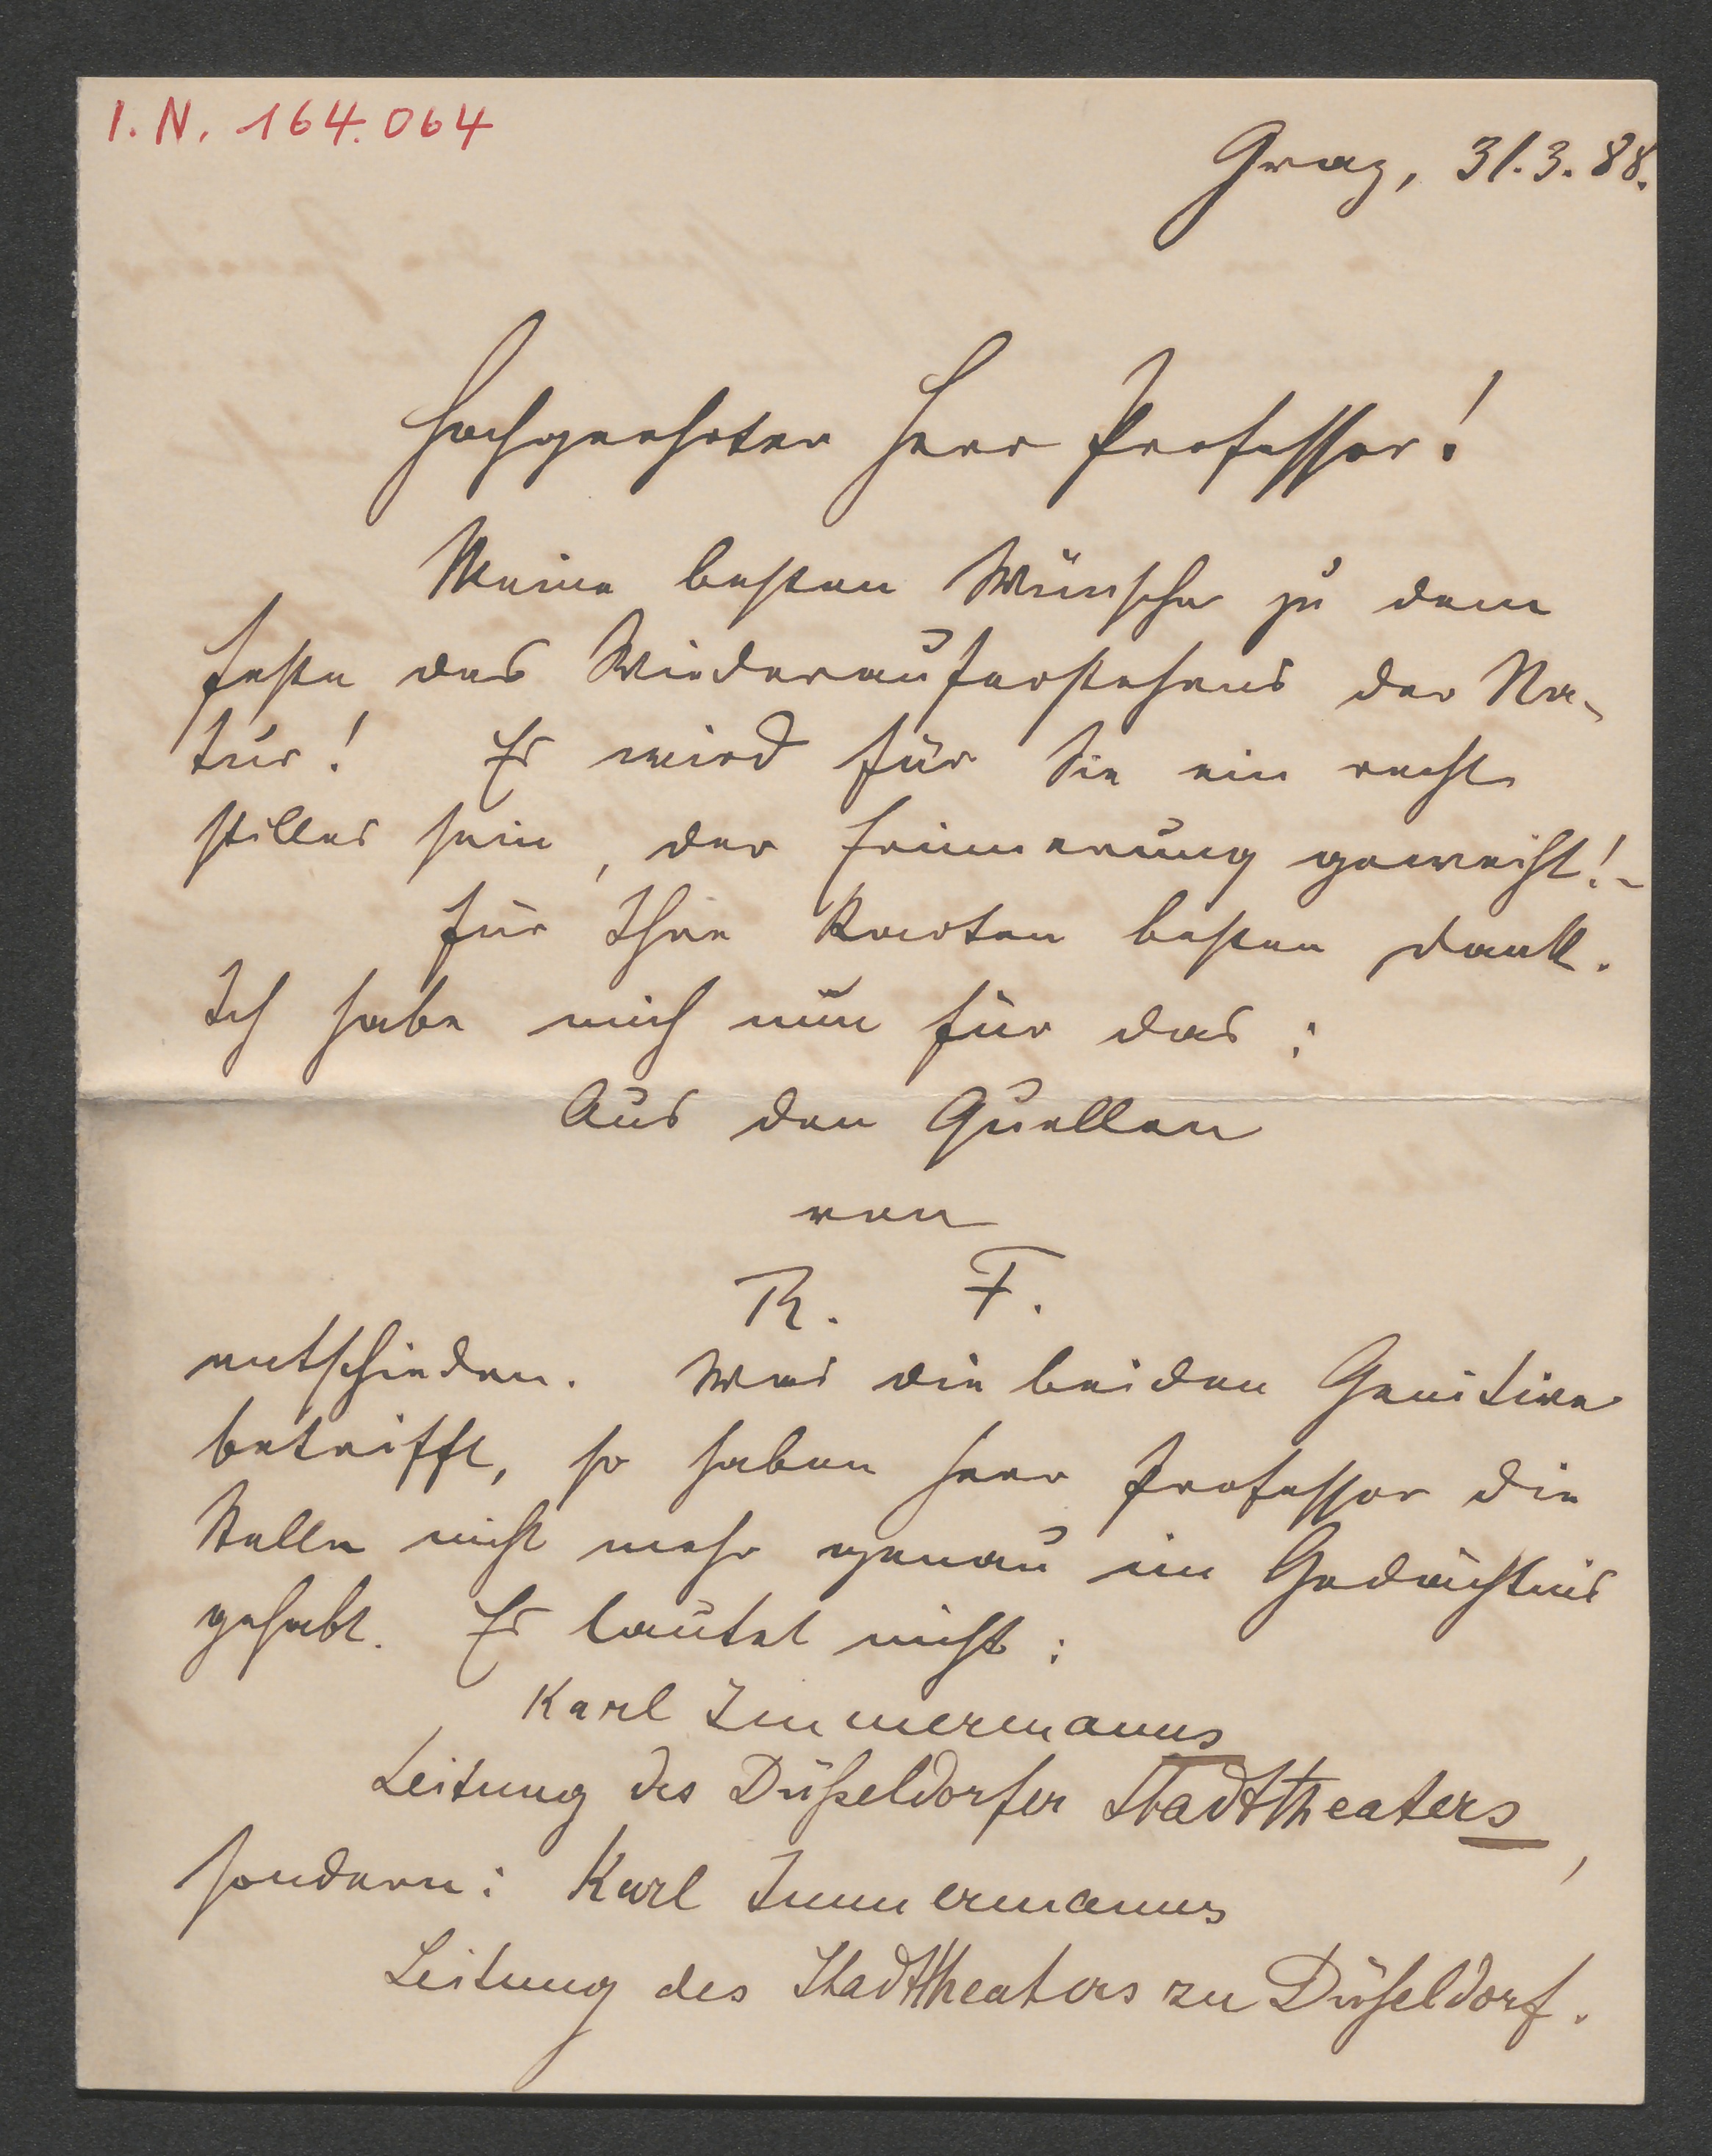 I. N. 164.064
Graz, 31.3.88.
Hochgeehrter Herr Professor!
Meine besten Wünsche zu dem
Feste des Wiederauferstehens der Na-
tur! Es wird für Sie ein recht
stilles sein, der Erinnerung geweiht! -
Für Ihre Karten besten Dank.
Ich habe mich nun für das:
Aus den Quellen
von
R. F.
entschieden. Was die beiden Genitive
betrifft, so haben Herr Professor die
Stelle nicht mehr genau im Gedächtnis
gehabt. Es lautet nicht:
Karl Immermanns
Leitung des Düßeldorfer Stadttheaters,
sondern: Karl Immermanns
Leitung des Stadttheaters zu Düßeldorf.